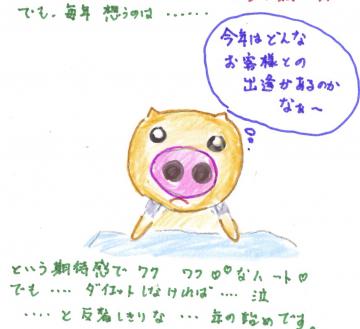 でも、毎年 想うのは ‥‥‥
今年はどんな
お客様との
出逢があるのか
なぁ～
という期待感で ワク ワク♡♡なハート♡
でも ‥‥ ダイエットしなければ ‥‥ 泣
‥‥ と 反省しきりな ‥‥ 年の始めです。